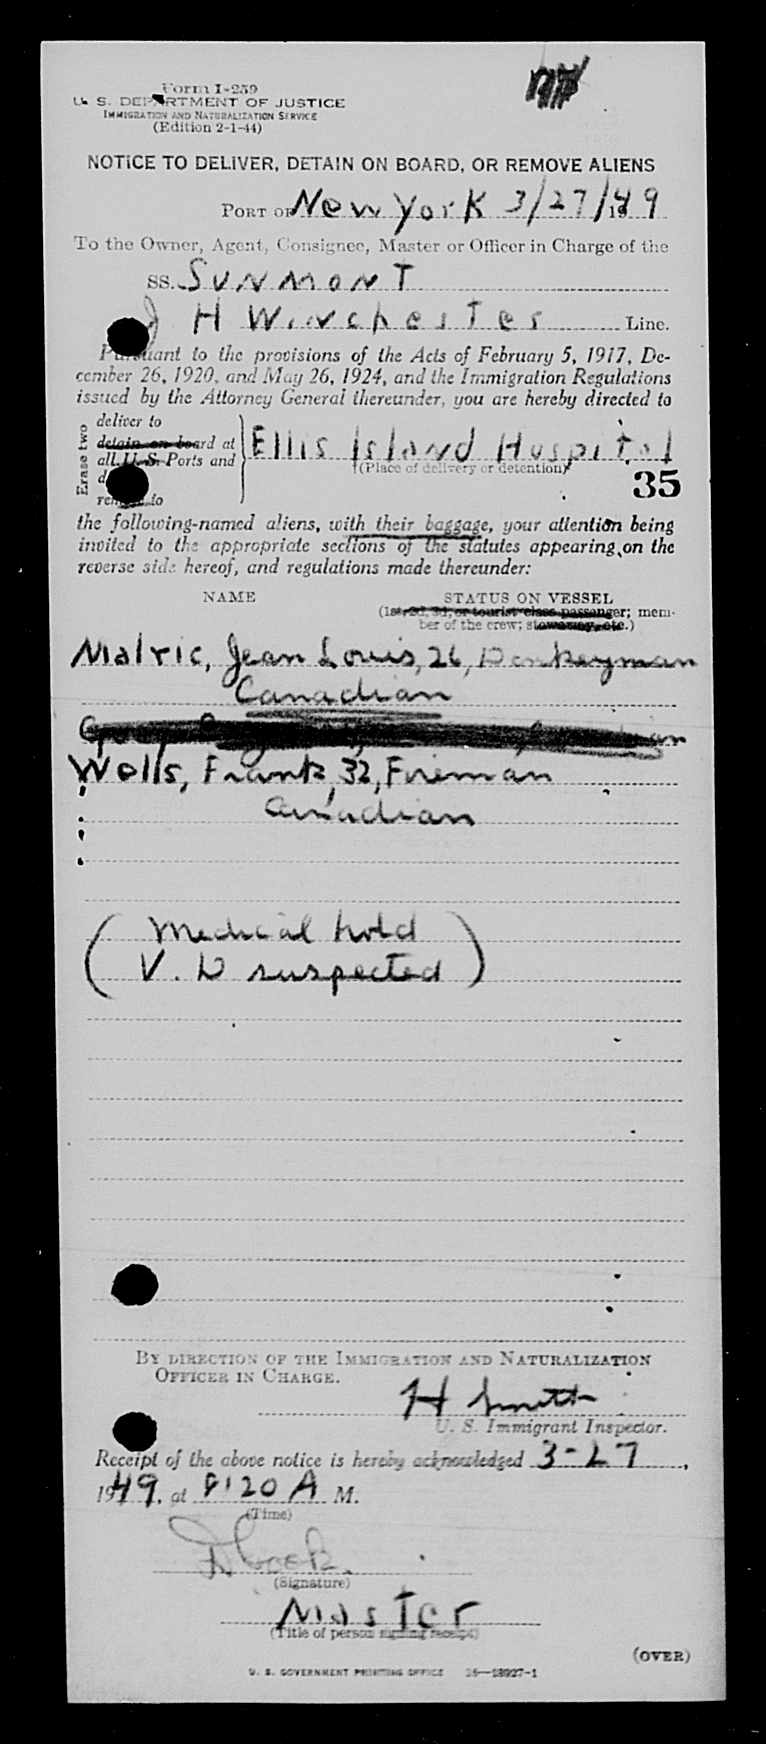 Form I-259
U. S. DEPARTMENT OF JUSTICE
IMMIGRATION AND NATURALIZATION SERVICE
(Edition 2-1-44)
NOTICE TO DELIVER, DETAIN ON BOARD, OR REMOVE ALIENS
PORT OF New York 3/27/1949
To the Owner, Agent, Consignee, Master or Officer in Charge of the
SS. SUNMONT
J H Winchester Line.
Pursuant to the provisions of the Acts of February 5, 1917, De-
cember 26, 1920, and May 26, 1924, and the Immigration Regulations
issued by the Attorney General thereunder, you are hereby directed to
Erase two
deliver to
detain on board at
all U. S. Ports and
Ellis Island Hospital
(Place of delivery or detention)
35
remove to
the following-named aliens, with their baggage, your attention being
invited to the appropriate sections of the statutes appearing on the
reverse side hereof, and regulations made thereunder:
NAME STATUS ON VESSEL
(1st, 2d, 3d, or tourist class passenger; mem-
ber of the crew; stowaway, etc.)
Malric, Jean Louis, 26, Donkeyman
Canadian
Wells, Frank, 32, Fireman
Canadian
(Medical hold
V. D suspected)
BY DIRECTION OF THE IMMIGRATION AND NATURALIZATION
OFFICER IN CHARGE.
H Smith
U. S. Immigrant Inspector.
Receipt of the above notice is hereby acknowledged 3-27,
1949, at 8:20 A M.
(Time)
(Signature)
Master
(Title of person signing receipt)
(OVER)
U. S. GOVERNMENT PRINTING OFFICE 16—18927-1